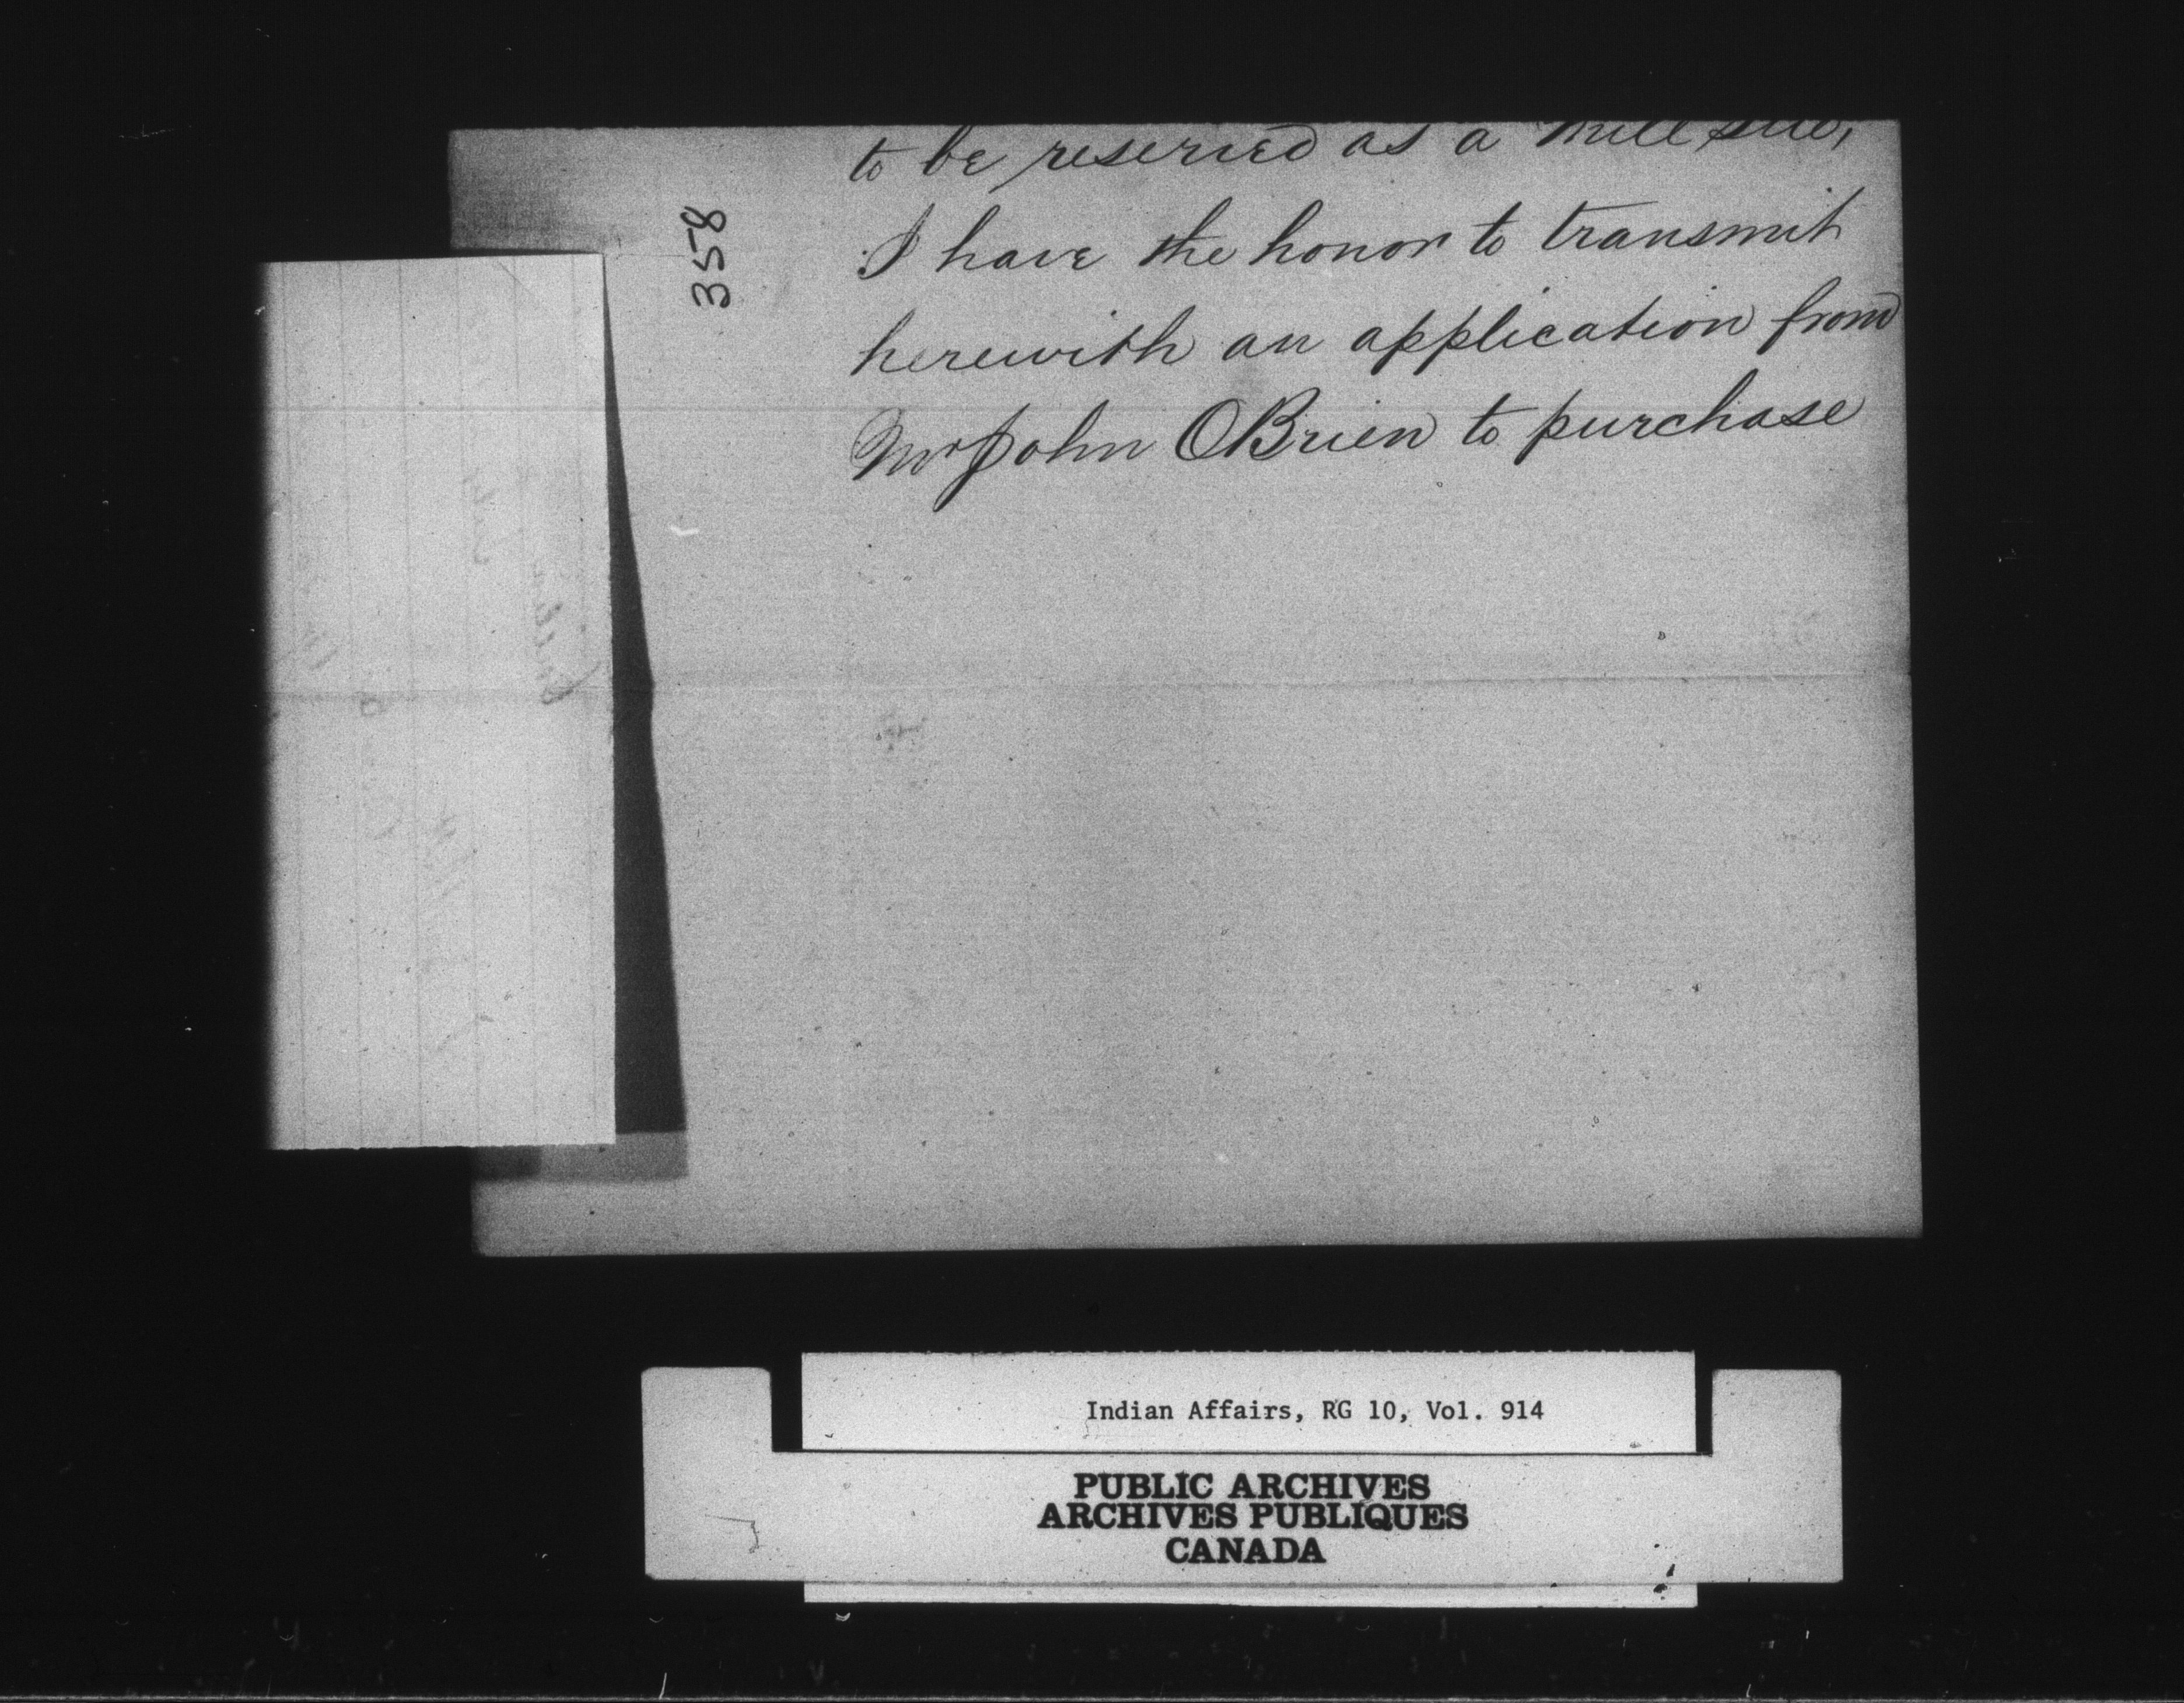 to be reserved as a mill site,
I have the honor to transmit
herewith an application from
Mr John OBrien to purchase
3558
Indian Affairs, RG 10, Vol. 914
PUBLIC ARCHIVES
ARCHIVES PUBLIQUES
CANADA